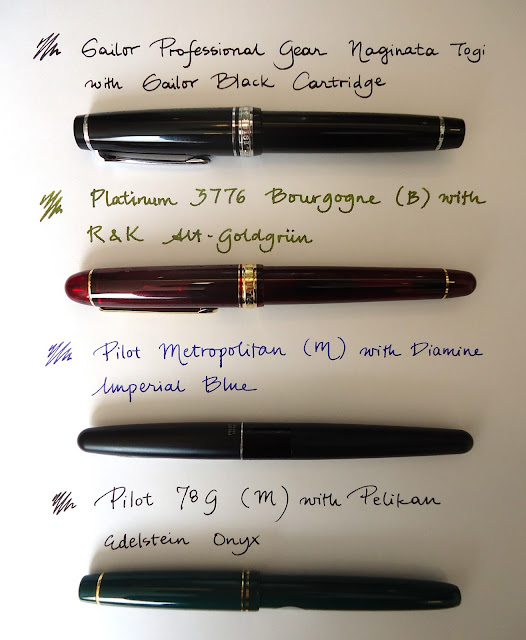 Sailor Professional Gear Naginata Togi
with Sailor Black Cartridge
Platinum 3776 Bourgogne (B) with
R & K Alt-Goldgrün
Pilot Metropolitan (M) with Diamine
Imperial Blue
Pilot 78G (M) with Pelikan
Edelstein Onyx